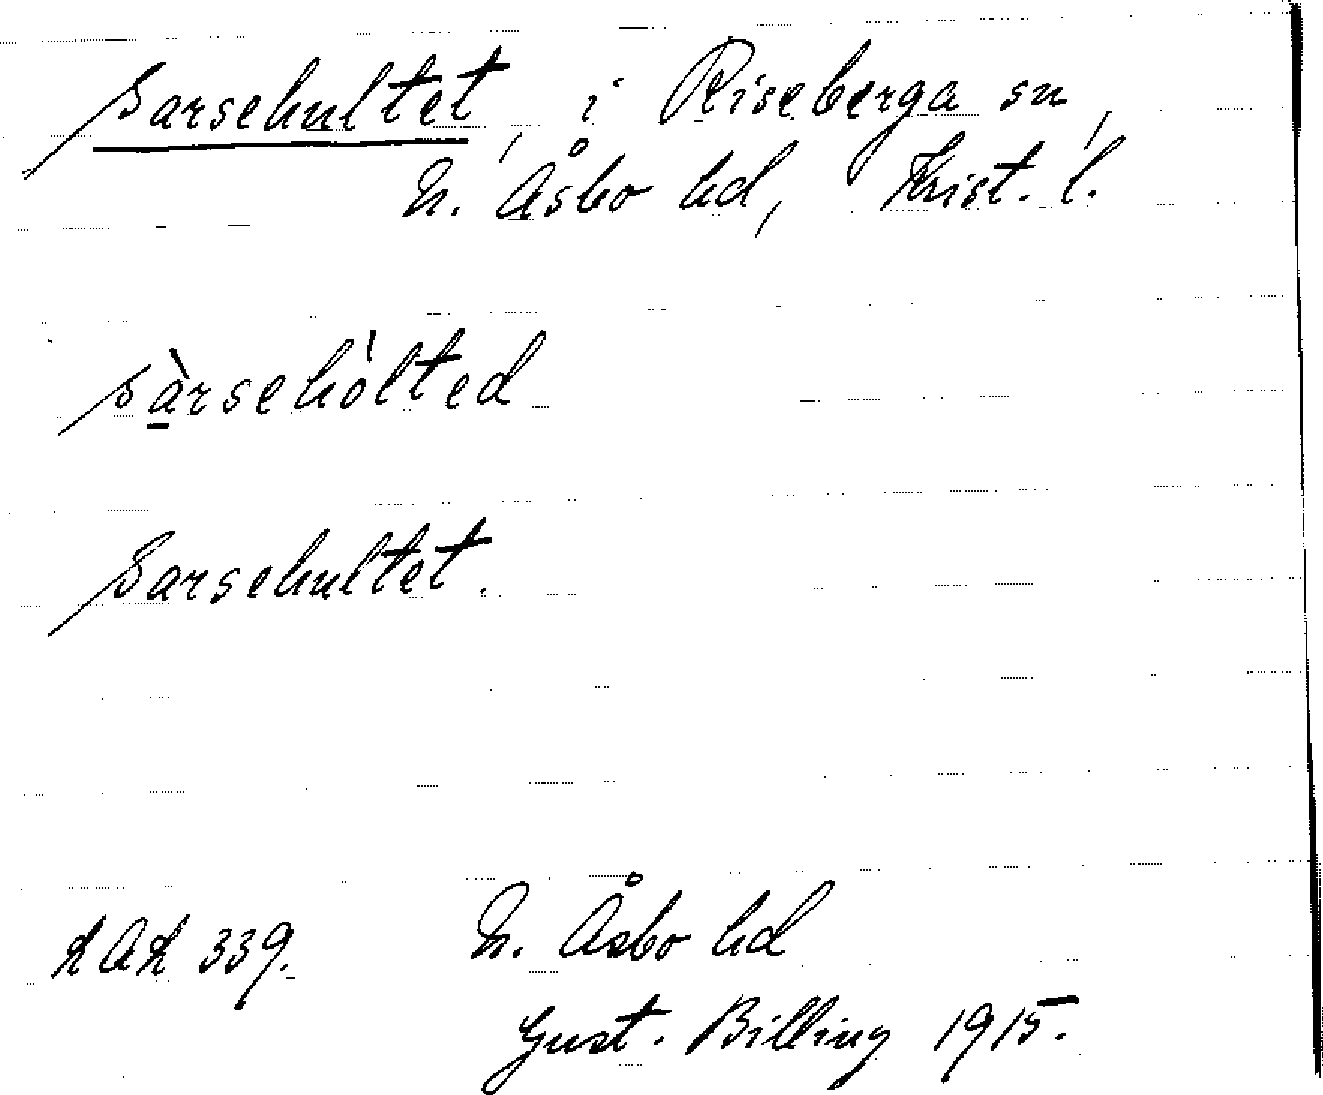 Sarsehultet, i Riseberga sn,
N. Åsbo hd, Krist. l.
sàrsehòlted
Sarsehultet.
LAL 339. N. Åsbo hd
Gust. Billing 1915.